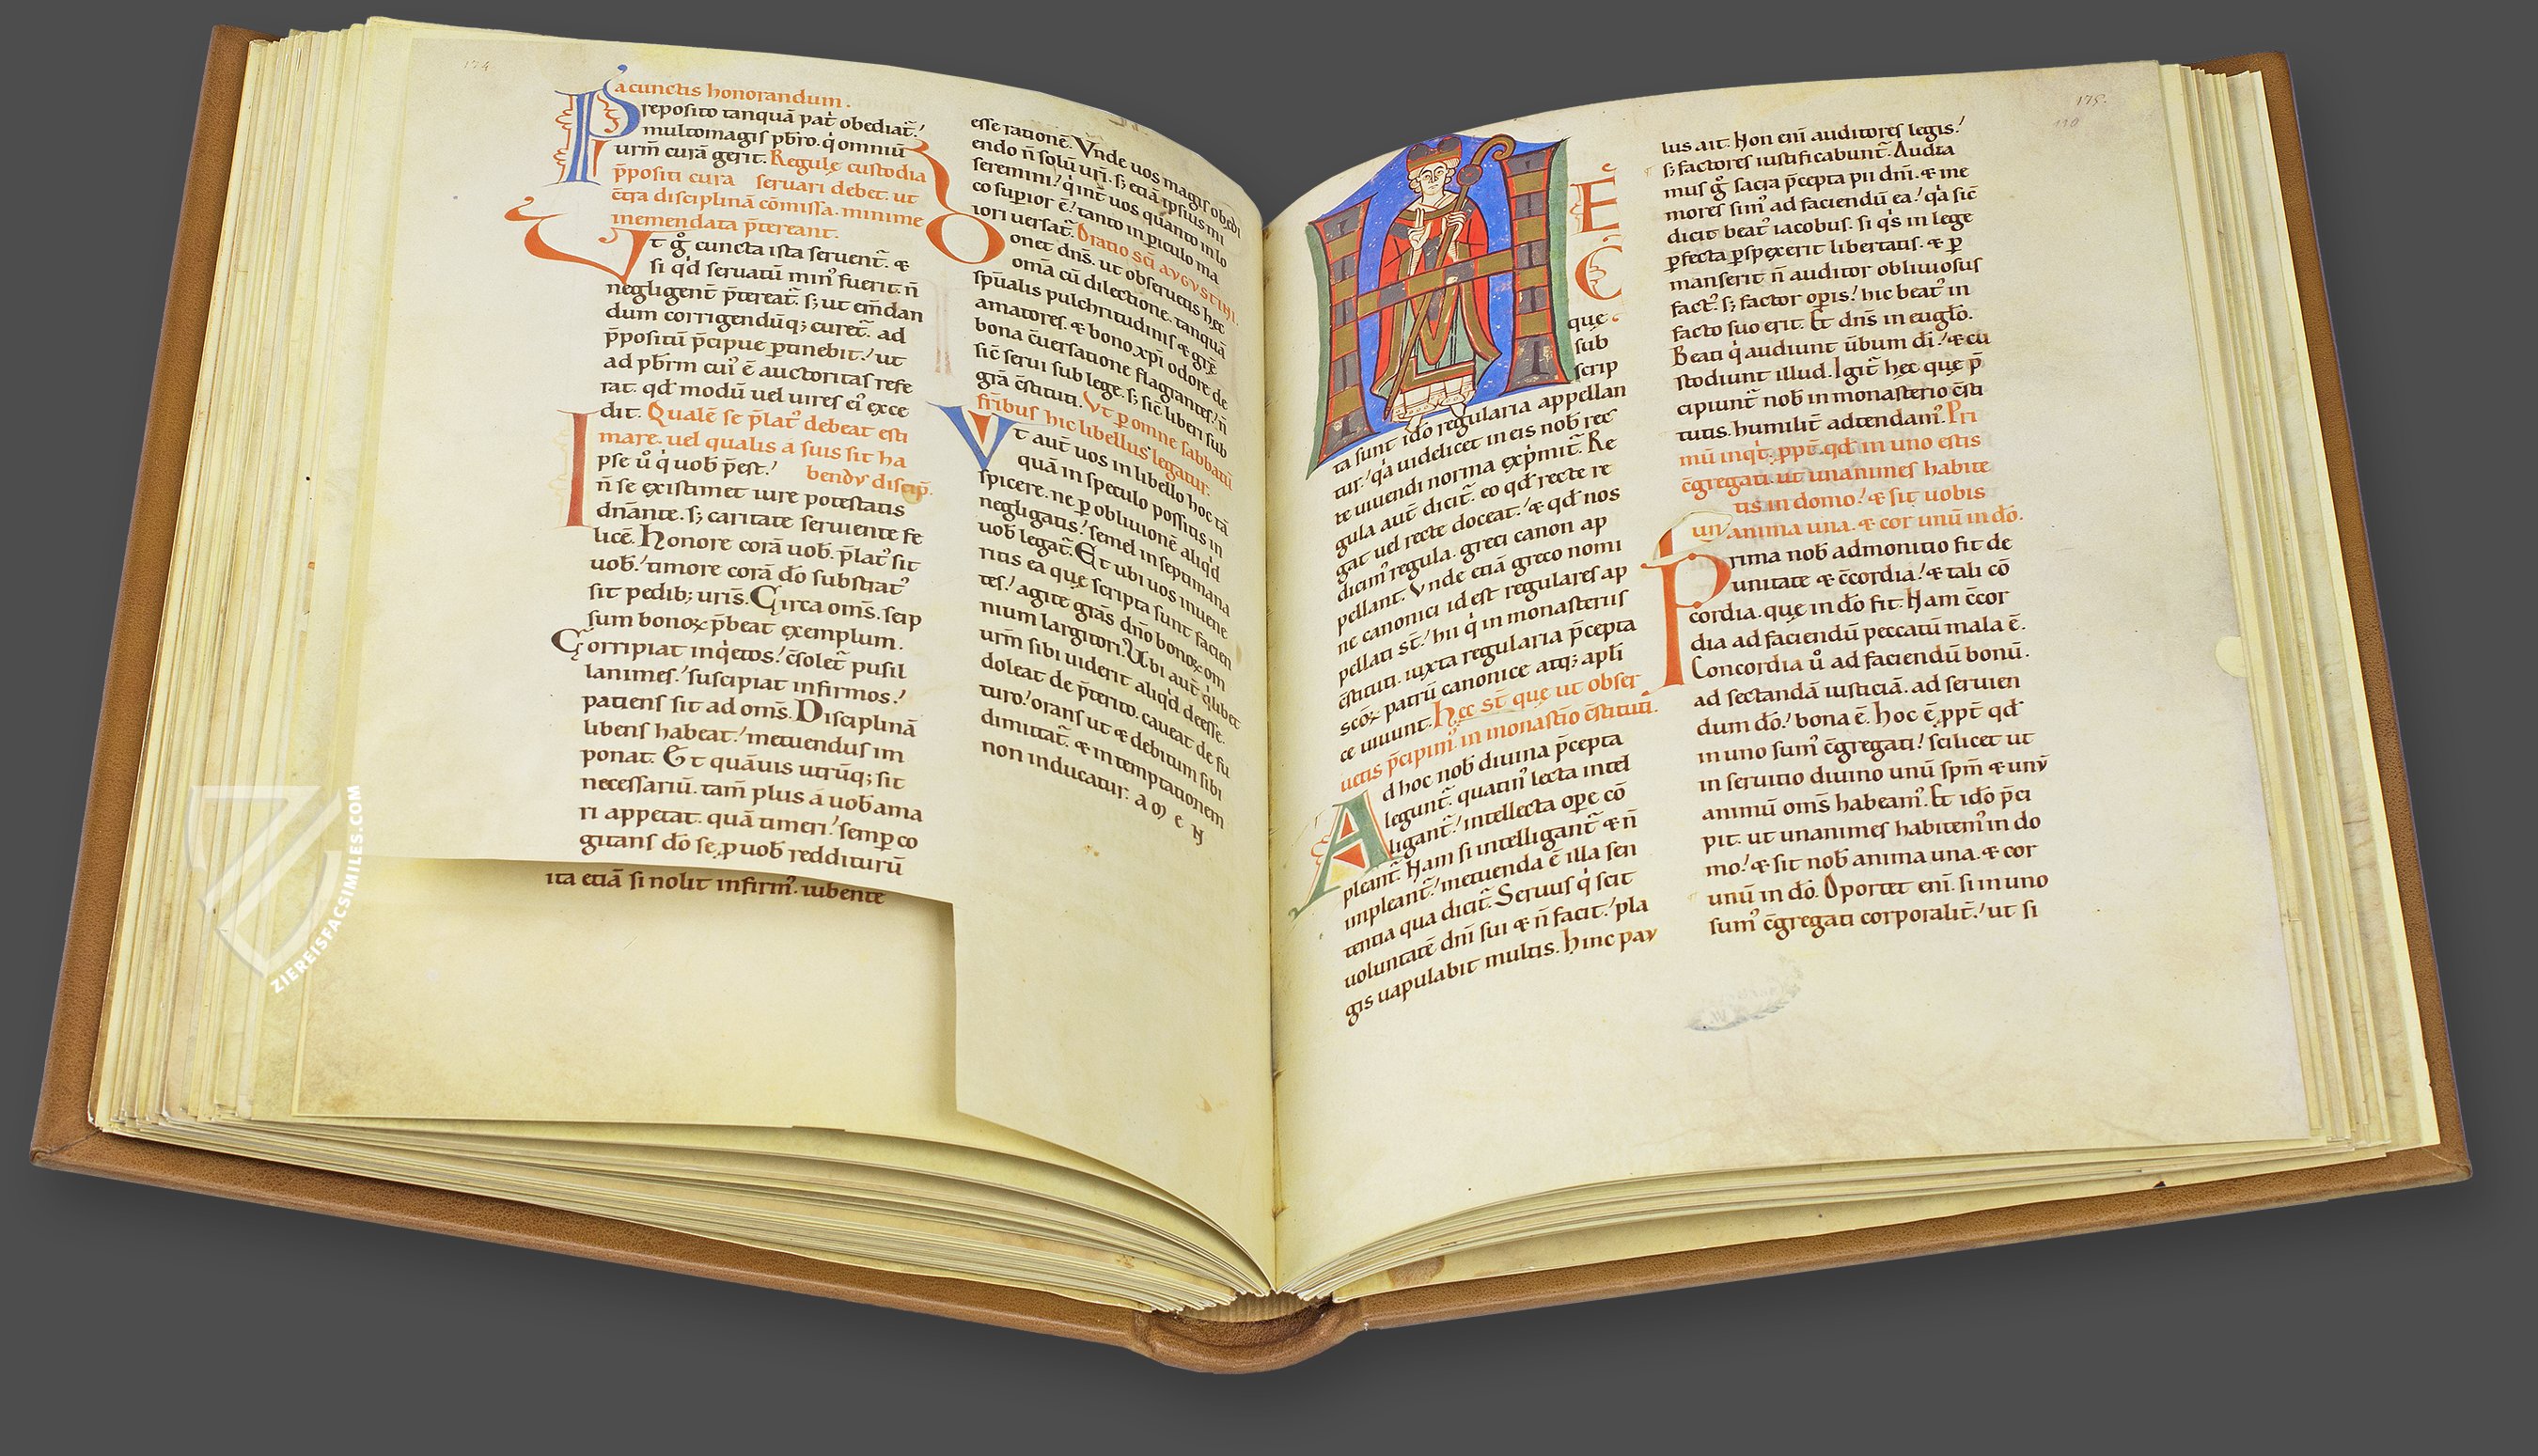 174
a cunctis honorandum.
Preposito tanquā pat̄ obediat̄.
multomagis p̄bro. q̇ omniū
urm̄ curā gerit. Regulę custodia
p̄positi cura servari debet. ut
c̄tra disciplinā cōmissa. minime
inemendata p̄tereant.
Ut g° cuncta ista seruent̄. &
si qd̄ seruatū min' fuerit. n̄
negligent̄ p̄tereat̄. s; ut em̄dan
dum corrigendūq; curet̄. ad
p̄positū p̄cipue ꝑtinebit. ut
ad p̄brm cui' ē auctoritas refe
rat. qd̄ modū uel uires ei' exce
dit. Qualē se p̄lat' debeat esti
mare. uel qualis a suis sit ha
bendus discip̄.
Ipse u° q̇ uob̄ p̄est.
n̄ se existimet iure potestatis
dn̄ante. s; caritate seruiente fe
licē. Honore corā uob̄. p̄lat' sit
uob̄. timore corā dō substrat'
sit pedib; uris̄. Circa om̄s. seip
sum bonoꝝ p̄beat exemplum.
Corripiat inq̇etos. c̄solet̄ pusil
lanimes. suscipiat infirmos.
patiens sit ad om̄s. Disciplinā
libens habeat. metuendus im
ponat. Et quāuis utrūq; sit
necessariū. tam̄ plus a uob̄ ama
ri appetat. quā timeri. semꝑ co
gitans dō se, ꝓ uob̄ redditurū
ita etiā si nolit infirm'. iubente
esse rationē. Vnde uos magis obedi
endo n̄ solū uri̅. s; etiā ipsius mi
seremini. q̇ int̄ uos quanto in lo
co suꝑior ē. tanto in ꝑiculo ma
iori uersat̄. Oratio sc̄i AVGVSTINI.
Donet dn̄s. ut obseruetis hęc
omā cū dilectione. tanquā
spūalis pulchritudinis & grę̄
amatores. & bono xp̄i odore de
bona c̄uersatione flagrantes. n̄
sic̄ serui sub lege. s; sic̄ liberi sub
grā c̄stituti. Vt ꝑ omne sabbatū
fr̄ibus hic libellus legatur.
Vt aut̄ uos in libello hoc tā
quā in speculo possitis in
spicere. ne ꝑ obliuionē aliq̇d
negligatis. semel in septimana
uob̄ legat̄. Et ubi uos inuene
ritis ea quę scripta sunt facien
tes. agite grās dn̄o bonoꝝ om
nium largitori. Ubi aut̄ q̇libet
urm̄ sibi uiderit aliq̇d deesse.
doleat de p̄terito. caueat de fu
turo. orans ut & debitum sibi
dimittat̄. & in temptationem
non inducatur. amen
175.
HĘC
que
sub
scrip
ta sunt idō regularia appellan
tur. q̇a uidelicet in eis nob̄ rec
te uiuendi norma exp̄mit̄. Re
gula aut̄ dicit̄. eo qd̄ recte re
gat uel recte doceat. & qd̄ nos
dicim' regula. greci canon ap
pellant. Vnde etiā greco nomi
ne canonici id est regulares ap
pellati st̄. hii q̇ in monasteriis
c̄stituti. iuxta regularia p̄cepta
sc̄oꝝ patrū canonice atq; apl̄i
ce uiuunt. Hęc st̄ que ut obser
uetis p̄cipim' in monast̄io c̄stituti.
Ad hoc nob̄ diuina p̄cepta
legunt̄. quatin' lecta intel
ligant̄. intellecta oꝑe cō
pleant̄. Nam si intelligant̄ & n̄
impleant̄. metuenda ē illa sen
tentia qua dicit̄. Seruus q̇ scit
uoluntatē dn̄i sui & n̄ facit. pla
gis uapulabit multis. Hinc pau
lus ait. Non eni̅ auditores legis.
s; factores iustificabunt̄. Audia
mus g° sacra p̄cepta pii dn̄i. & me
mores sim' ad faciendū ea. q̇a sic̄
dicit beat' iacobus. si q̇s in lege
ꝑfecta ꝑspexerit libertatis. & ꝑ
manserit n̄ auditor obliuiosus
fact'. s; factor oꝑis. hic beat' in
facto suo erit. Et dn̄s in eugl̄o.
Beati q̇ audiunt ūbum di̅. & cu
stodiunt illud. Igit̄ hęc que p̄
cipiunt̄ nob̄ in monasterio c̄sti
tutis. humilit̄ adtendam'. Pri
mū inq̇t. ꝓpt̄. qd̄ in uno estis
c̄gregati. ut unanimes habite
tis in domo. & sit uobis
anima una. & cor unū in dō.
Prima nob̄ admonitio fit de
unitate & c̄cordia. & tali cō
cordia. quę in dō fit. Nam c̄cor
dia ad faciendū peccatū mala ē.
Concordia u° ad faciendū bonū.
ad sectandā iusticiā. ad seruien
dum dō. bona ē. Hoc ē ꝓpt̄ qd̄
in uno sum' c̄gregati. scilicet ut
in seruitio diuino unū spm̄ & unū
animū om̄s habeam'. Et idō p̄ci
pit. ut unanimes habitem' in do
mo. & sit nob̄ anima una. & cor
unū in dō. Oportet eni̅. si in uno
sum' c̄gregati corporalit̄. ut si
ZIEREISFACSIMILES.COM